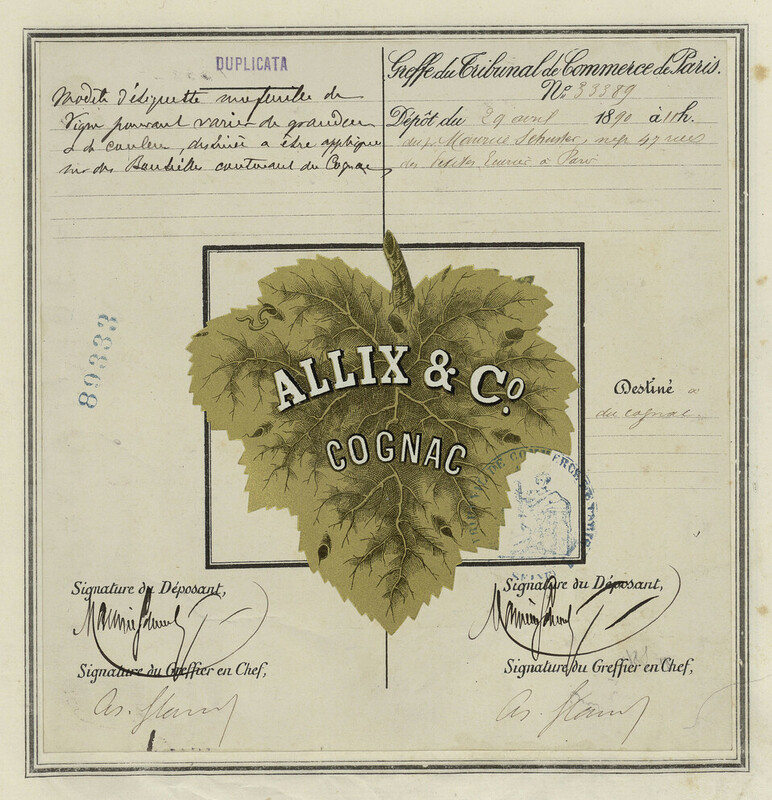 DUPLICATA
Modèle d'étiquette en feuille de
Vigne pouvant varier de grandeur
& de couleur, destinée a être appliquée
sur des Bouteilles contenant du Cognac
Greffe du Tribunal de Commerce de Paris.
No 33389
Dépôt du 29 avril 1890 à 11 h.
Maurice Schuster, 47 rue
des Petites Ecuries à Paris
89333
ALLIX & Co.
COGNAC
Destiné a
du cognac.
COMMERCE DE
SEINE
Signature du Déposant,
Signature du Greffier en Chef,
Signature du Déposant,
Signature du Greffier en Chef,